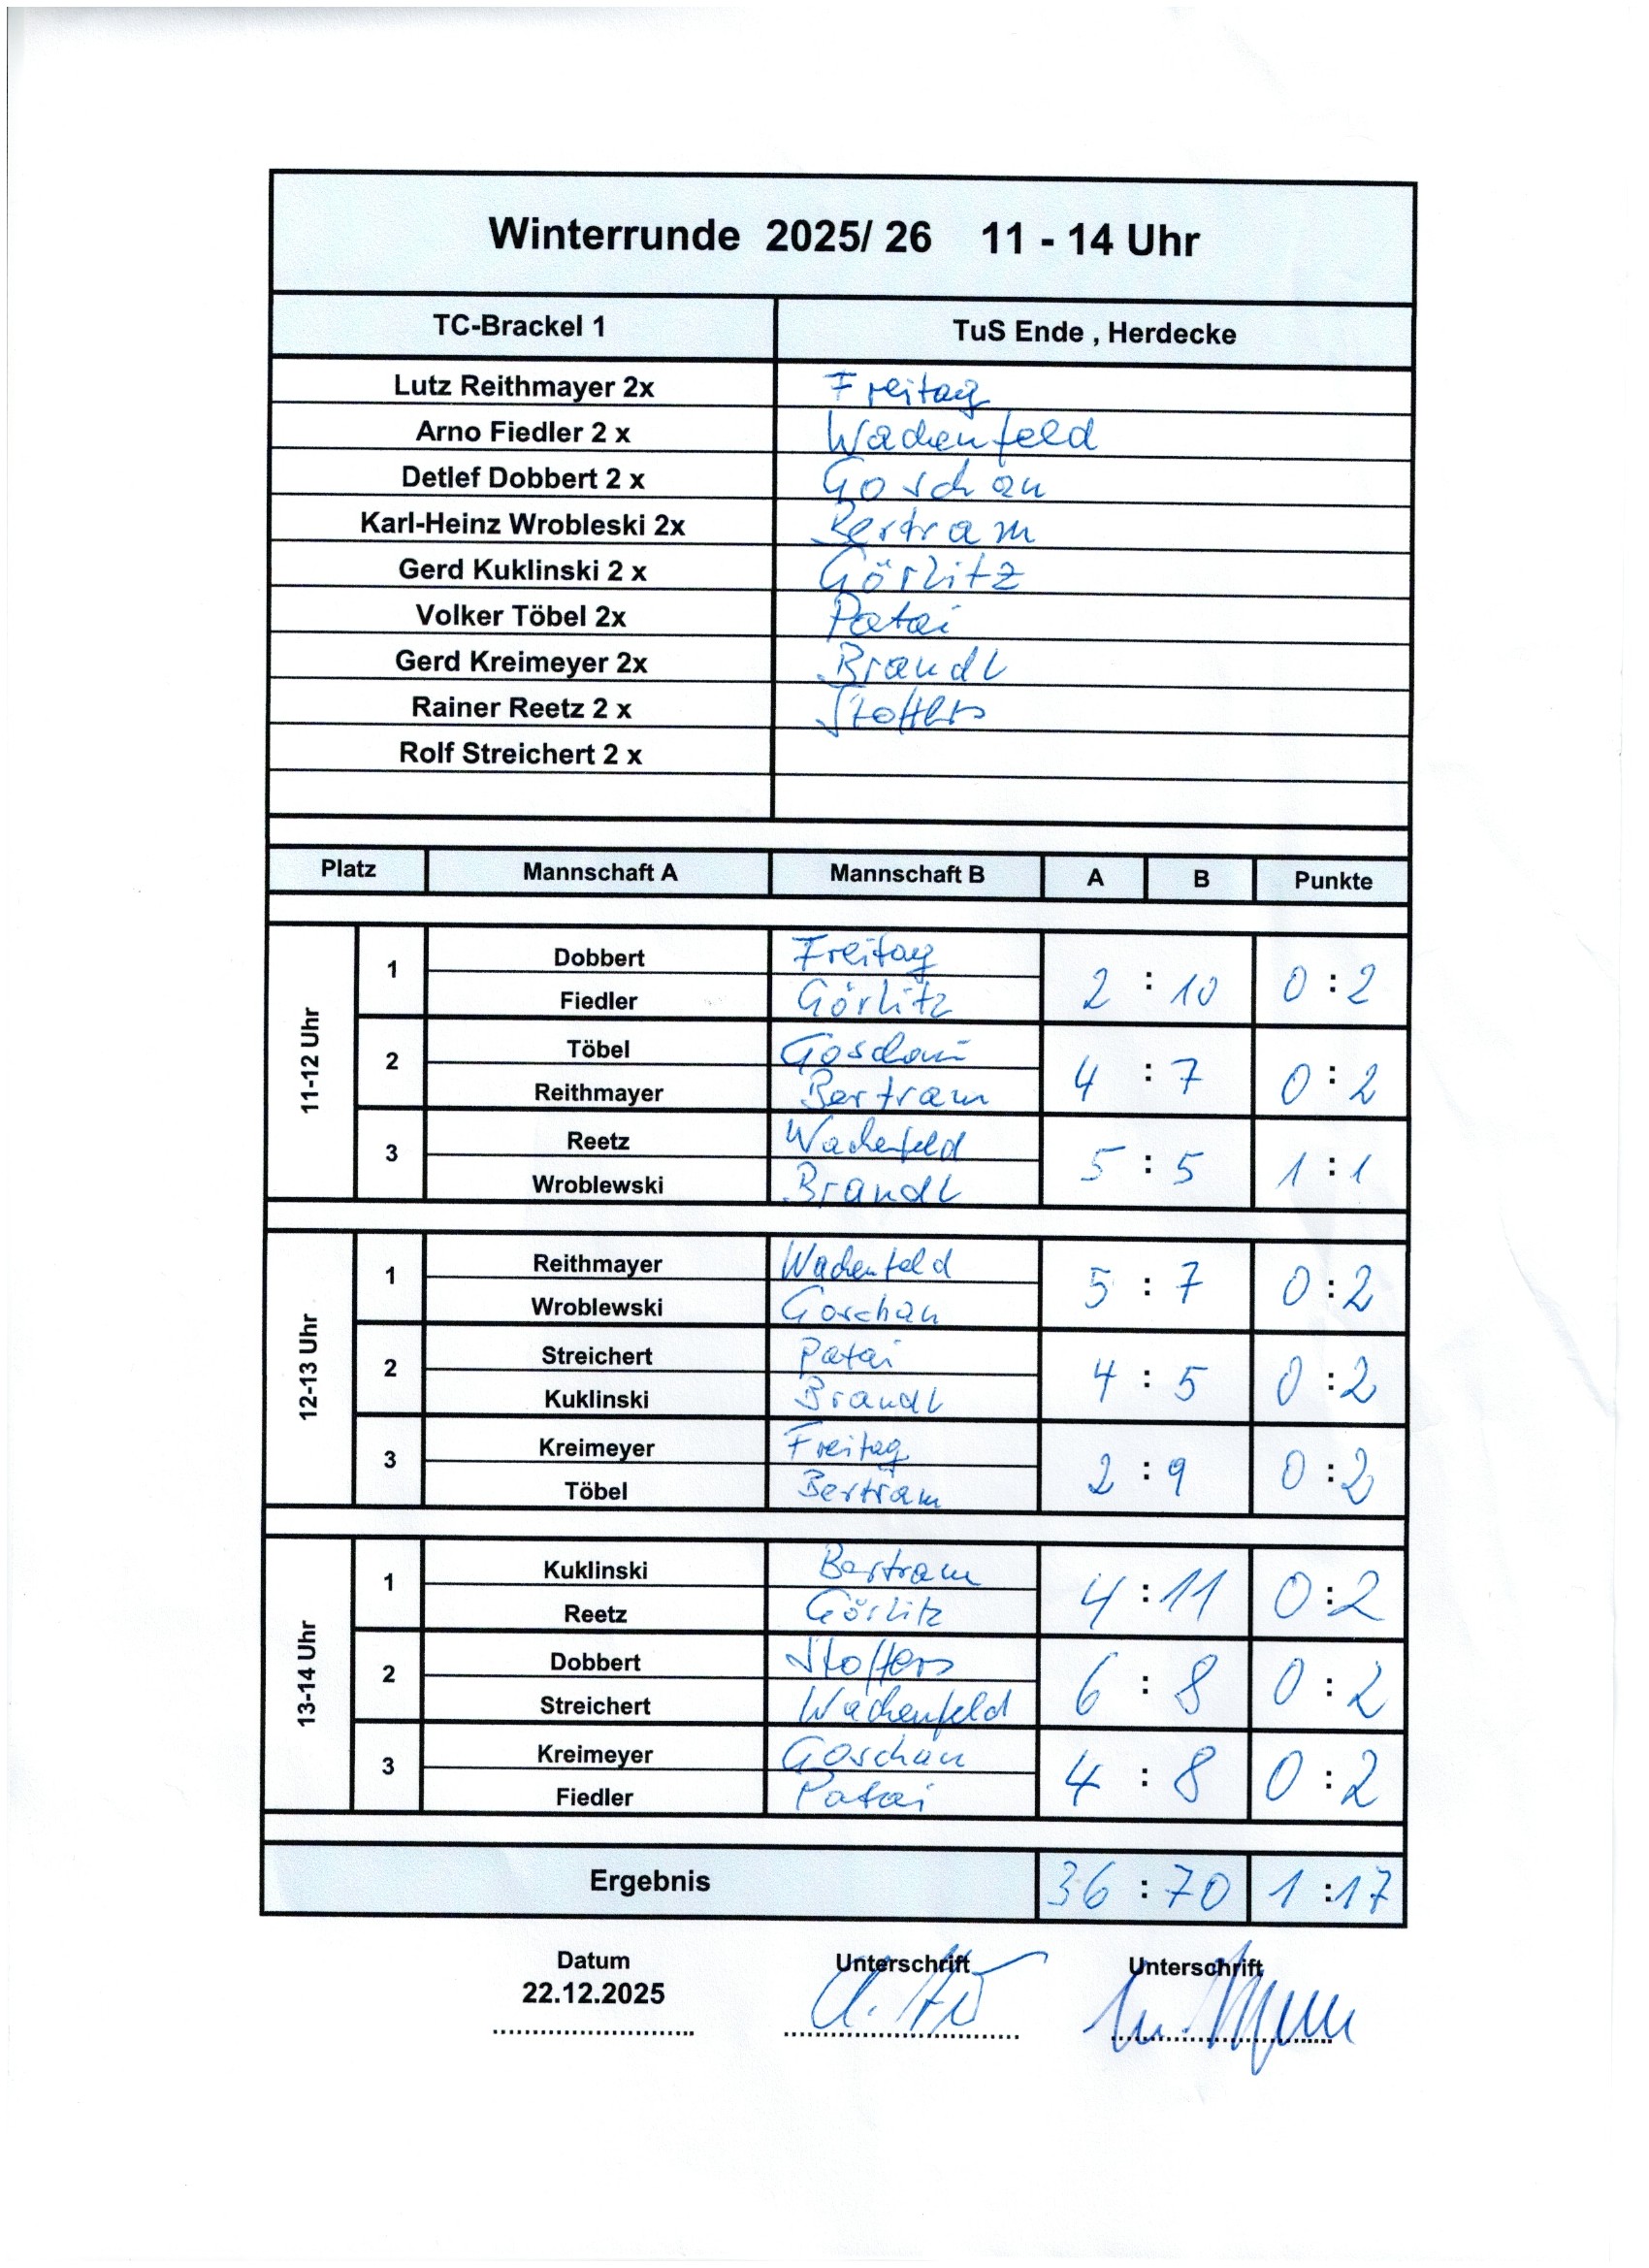 Winterrunde 2025/ 26 11 - 14 Uhr
TC-Brackel 1 TuS Ende , Herdecke
Lutz Reithmayer 2x Freitag
Arno Fiedler 2 x Wachenfeld
Detlef Dobbert 2 x Goschau
Karl-Heinz Wrobleski 2x Bertram
Gerd Kuklinski 2 x Görlitz
Volker Töbel 2x Patai
Gerd Kreimeyer 2x Brandl
Rainer Reetz 2 x Stoffers
Rolf Streichert 2 x
Platz Mannschaft A Mannschaft B A B Punkte
11-12 Uhr
1 Dobbert Freitag 2 : 10 0 : 2
Fiedler Görlitz
2 Töbel Goschau 4 : 7 0 : 2
Reithmayer Bertram
3 Reetz Wachenfeld 5 : 5 1 : 1
Wroblewski Brandl
12-13 Uhr
1 Reithmayer Wachenfeld 5 : 7 0 : 2
Wroblewski Goschau
2 Streichert Patai 4 : 5 0 : 2
Kuklinski Brandl
3 Kreimeyer Freitag 2 : 9 0 : 2
Töbel Bertram
13-14 Uhr
1 Kuklinski Bertram 4 : 11 0 : 2
Reetz Görlitz
2 Dobbert Stoffers 6 : 8 0 : 2
Streichert Wachenfeld
3 Kreimeyer Goschau 4 : 8 0 : 2
Fiedler Patai
Ergebnis 36 : 70 1 : 17
Datum Unterschrift Unterschrift
22.12.2025